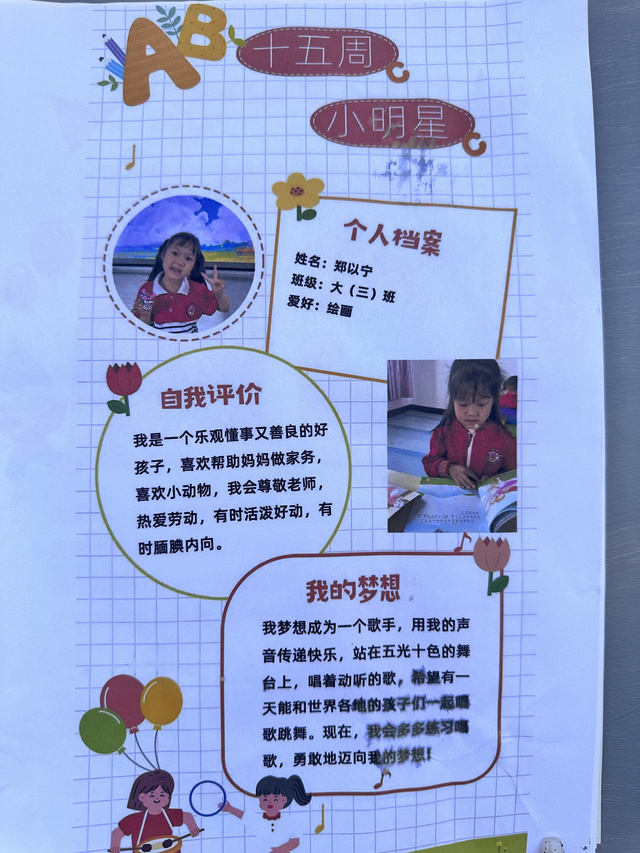 AB
十五周
小明星
个人档案
姓名：郑以宁
班级：大（三）班
爱好：绘画
自我评价
我是一个乐观懂事又善良的好
孩子，喜欢帮助妈妈做家务，
喜欢小动物，我会尊敬老师，
热爱劳动，有时活泼好动，有
时腼腆内向。
我的梦想
我梦想成为一个歌手，用我的声
音传递快乐，站在五光十色的舞
台上，唱着动听的歌，希望有一
天能和世界各地的孩子们一起唱
歌跳舞。现在，我会多多练习唱
歌，勇敢地迈向我的梦想！